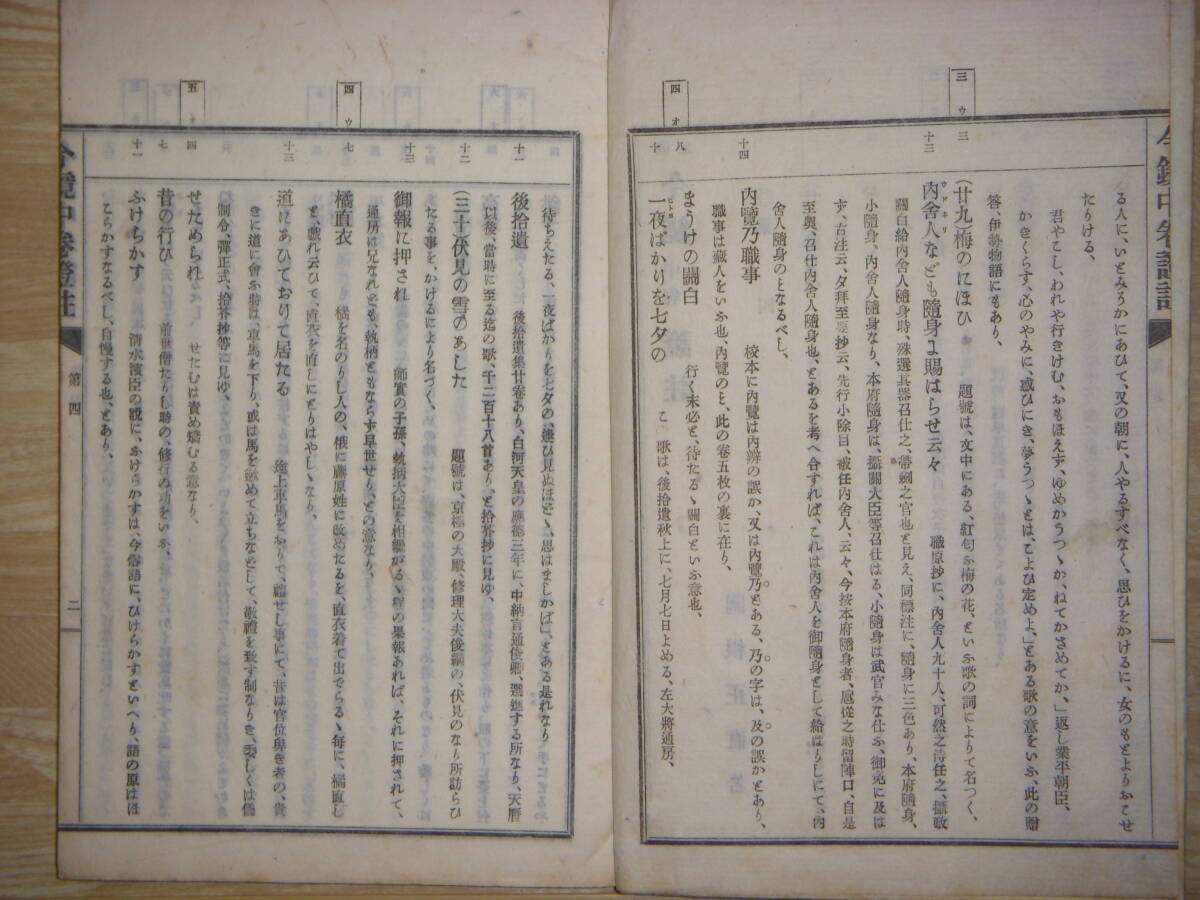 る人に、いとみそかにあひて、又の朝に、人やるすべなく、思ひをかけるに、女のもとよりおこせ
たりける、
君やこし、われや行きけむ、おもほえず、ゆめかうつゝか、ねてかさめてか、」返し業平朝臣、
かきくらす、心のやみに、惑ひにき、夢うつゝとは、こよひ定めよ、」とある歌の意をいふ、此の贈
答、伊勢物語にもあり、
三ウ
三
(廿九)梅のにほひ 題號は、文中にある、紅匂ふ梅の花、といふ歌の詞によりて名つく、
十三
內舍人なども隨身に賜はらせ云々 職原抄に、內舍人九十人、可然之侍任之、攝政
ウドネリ
關白給內舍人隨身時、殊選其器召仕之、帶劒之官也と見え、同標注に、隨身に三色あり、本府隨身、
小隨身、內舍人隨身なり、本府隨身は、攝關大臣等召仕はる、小隨身は武官みな仕ふ、御免に及は
ず、吉注云、夕拜至要抄云、先行小除目、被任內舍人、云々、今按本府隨身者、扈從之時留陣口、自是
至奧、召仕內舍人隨身也、とあるを考へ合すれば、これは內舍人を御隨身として給はりしにて、內
舍人隨身のことなるべし、
十四
內覽乃職事 校本に內覽は內辨の誤か、又は內覽乃とある、乃の字は、及の誤かとあり、
職事は藏人をいふ也、內覽のこと、此の卷五枚の裏に在り、
四オ
八
まうけの關白 行く末必と、待たるゝ關白といふ意也、
十
一夜ばかりを七夕の こゝ歌は、後拾遺秋上に、七月七日よめる、左大將通房、
今鏡中卷證註
待ちえたる、一夜ばかりを七夕の、逢ひ見ぬほどゝ、思はましかば」、とある是れなり
十一
後拾遺 後拾遺集廿卷あり、白河天皇の應德三年に、中納言通俊卿、選進する所なり、天曆
以後、當時に至る迄の歌、千二百十八首あり、と拾芥抄に見ゆ、
十二
(三十)伏見の雪のあした 題號は、京極の大殿、修理大夫俊綱の、伏見のなり所訪らひ
たる事を、かけるにより名づく、
十三
御報に押され 師實の子孫、執柄大臣を相繼がるゝ程の果報あれば、それに押されて、
通房は兄なれども、執柄ともならず早世せり、との意なり、
四ウ
七
橘直衣 橘を名のりし人の、俄に藤原姓に改めたるを、直衣着て出でらるゝ每に、橘直し
と、戲れ云ひて、直衣を直しにとりはやしゝなり、
十三
道にあひておりて居たる 途上車馬をおりて、禮せし事にて、昔は官位卑き者の、貴
きに道に會ふ時は、車馬を下り、或は馬を駐めて立ちなどして、敬禮を致す制なりき、委しくは儀
制令、彈正式、拾芥抄等に見ゆ、
五オ
四
せためられ せたむは責め惱むる意なり、
七
昔の行ひ 前世僧たりし時の、修行の功をいふ、
十一
ふけらかす 淸水濱臣の說に、ふけらかすは、今俗語に、ひけらかすといへり、語の原はほ
こらかすなるべし、自慢する也、とあり、
今鏡中卷證註
第四
二